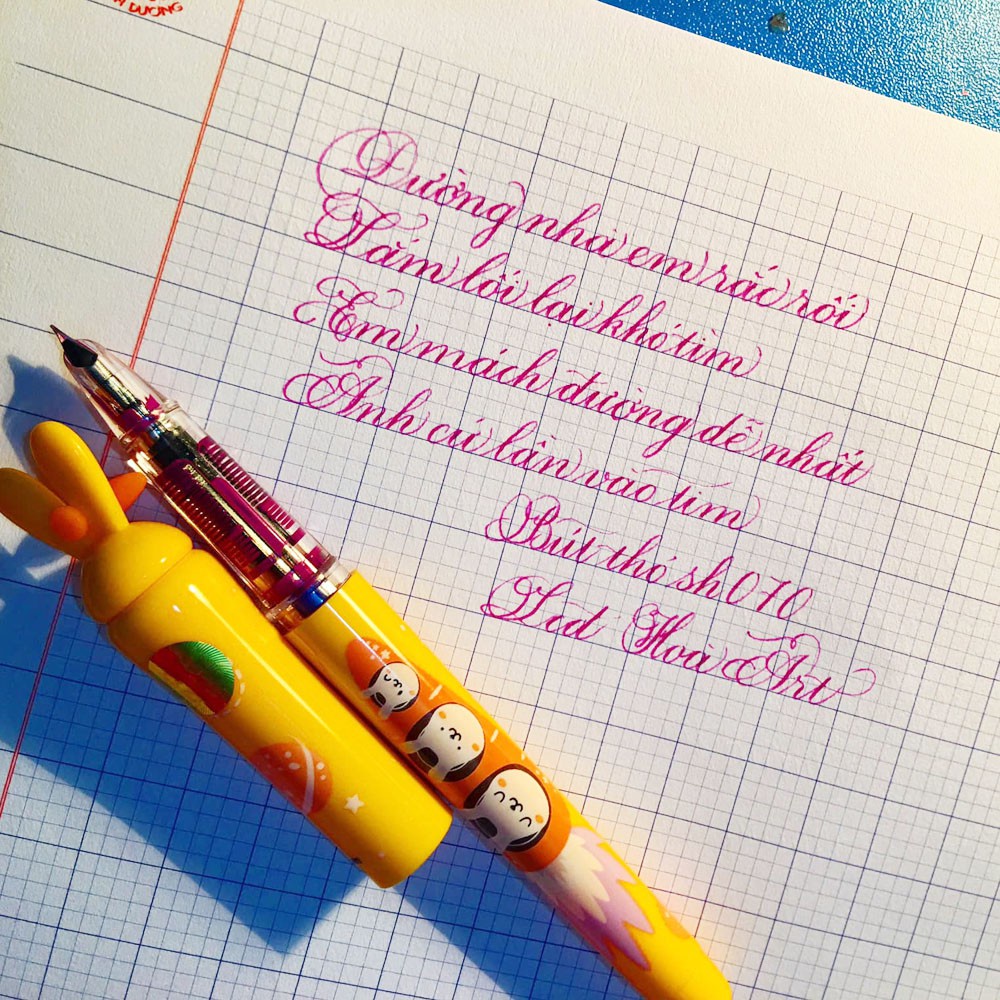 DƯƠNG
Đường nhà em rắc rối
Lắm lối lại khó tìm
Em mách đường dễ nhất
Anh cứ lần vào tim
Bút thỏ sh 070
Led Hoa Art